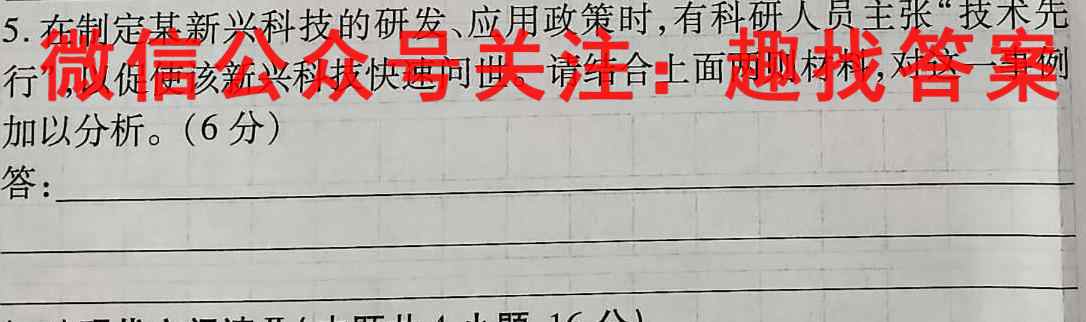 5. 在制定某新兴科技的研发、应用政策时,有科研人员主张“技术先
行”,以促使该新兴科技快速问世。请结合上面两则材料,对这一事例
微信公众号关注：趣找答案
加以分析。(6分)
答: